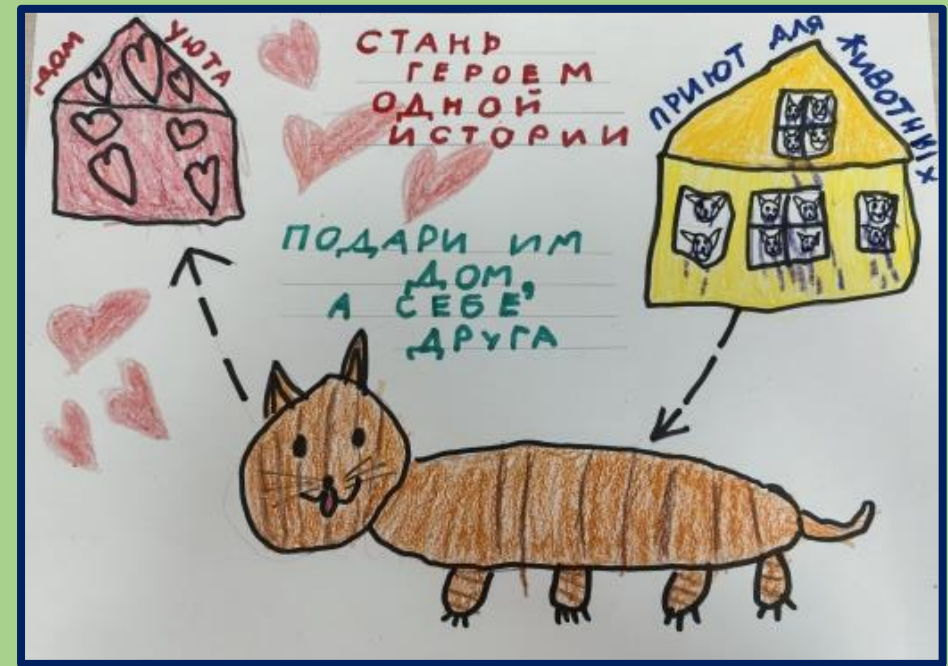 ДОМ УЮТА
СТАНЬ
ГЕРОЕМ
ОДНОЙ
ИСТОРИИ
ПРИЮТ ДЛЯ ЖИВОТНЫХ
ПОДАРИ ИМ
ДОМ,
А СЕБЕ,
ДРУГА